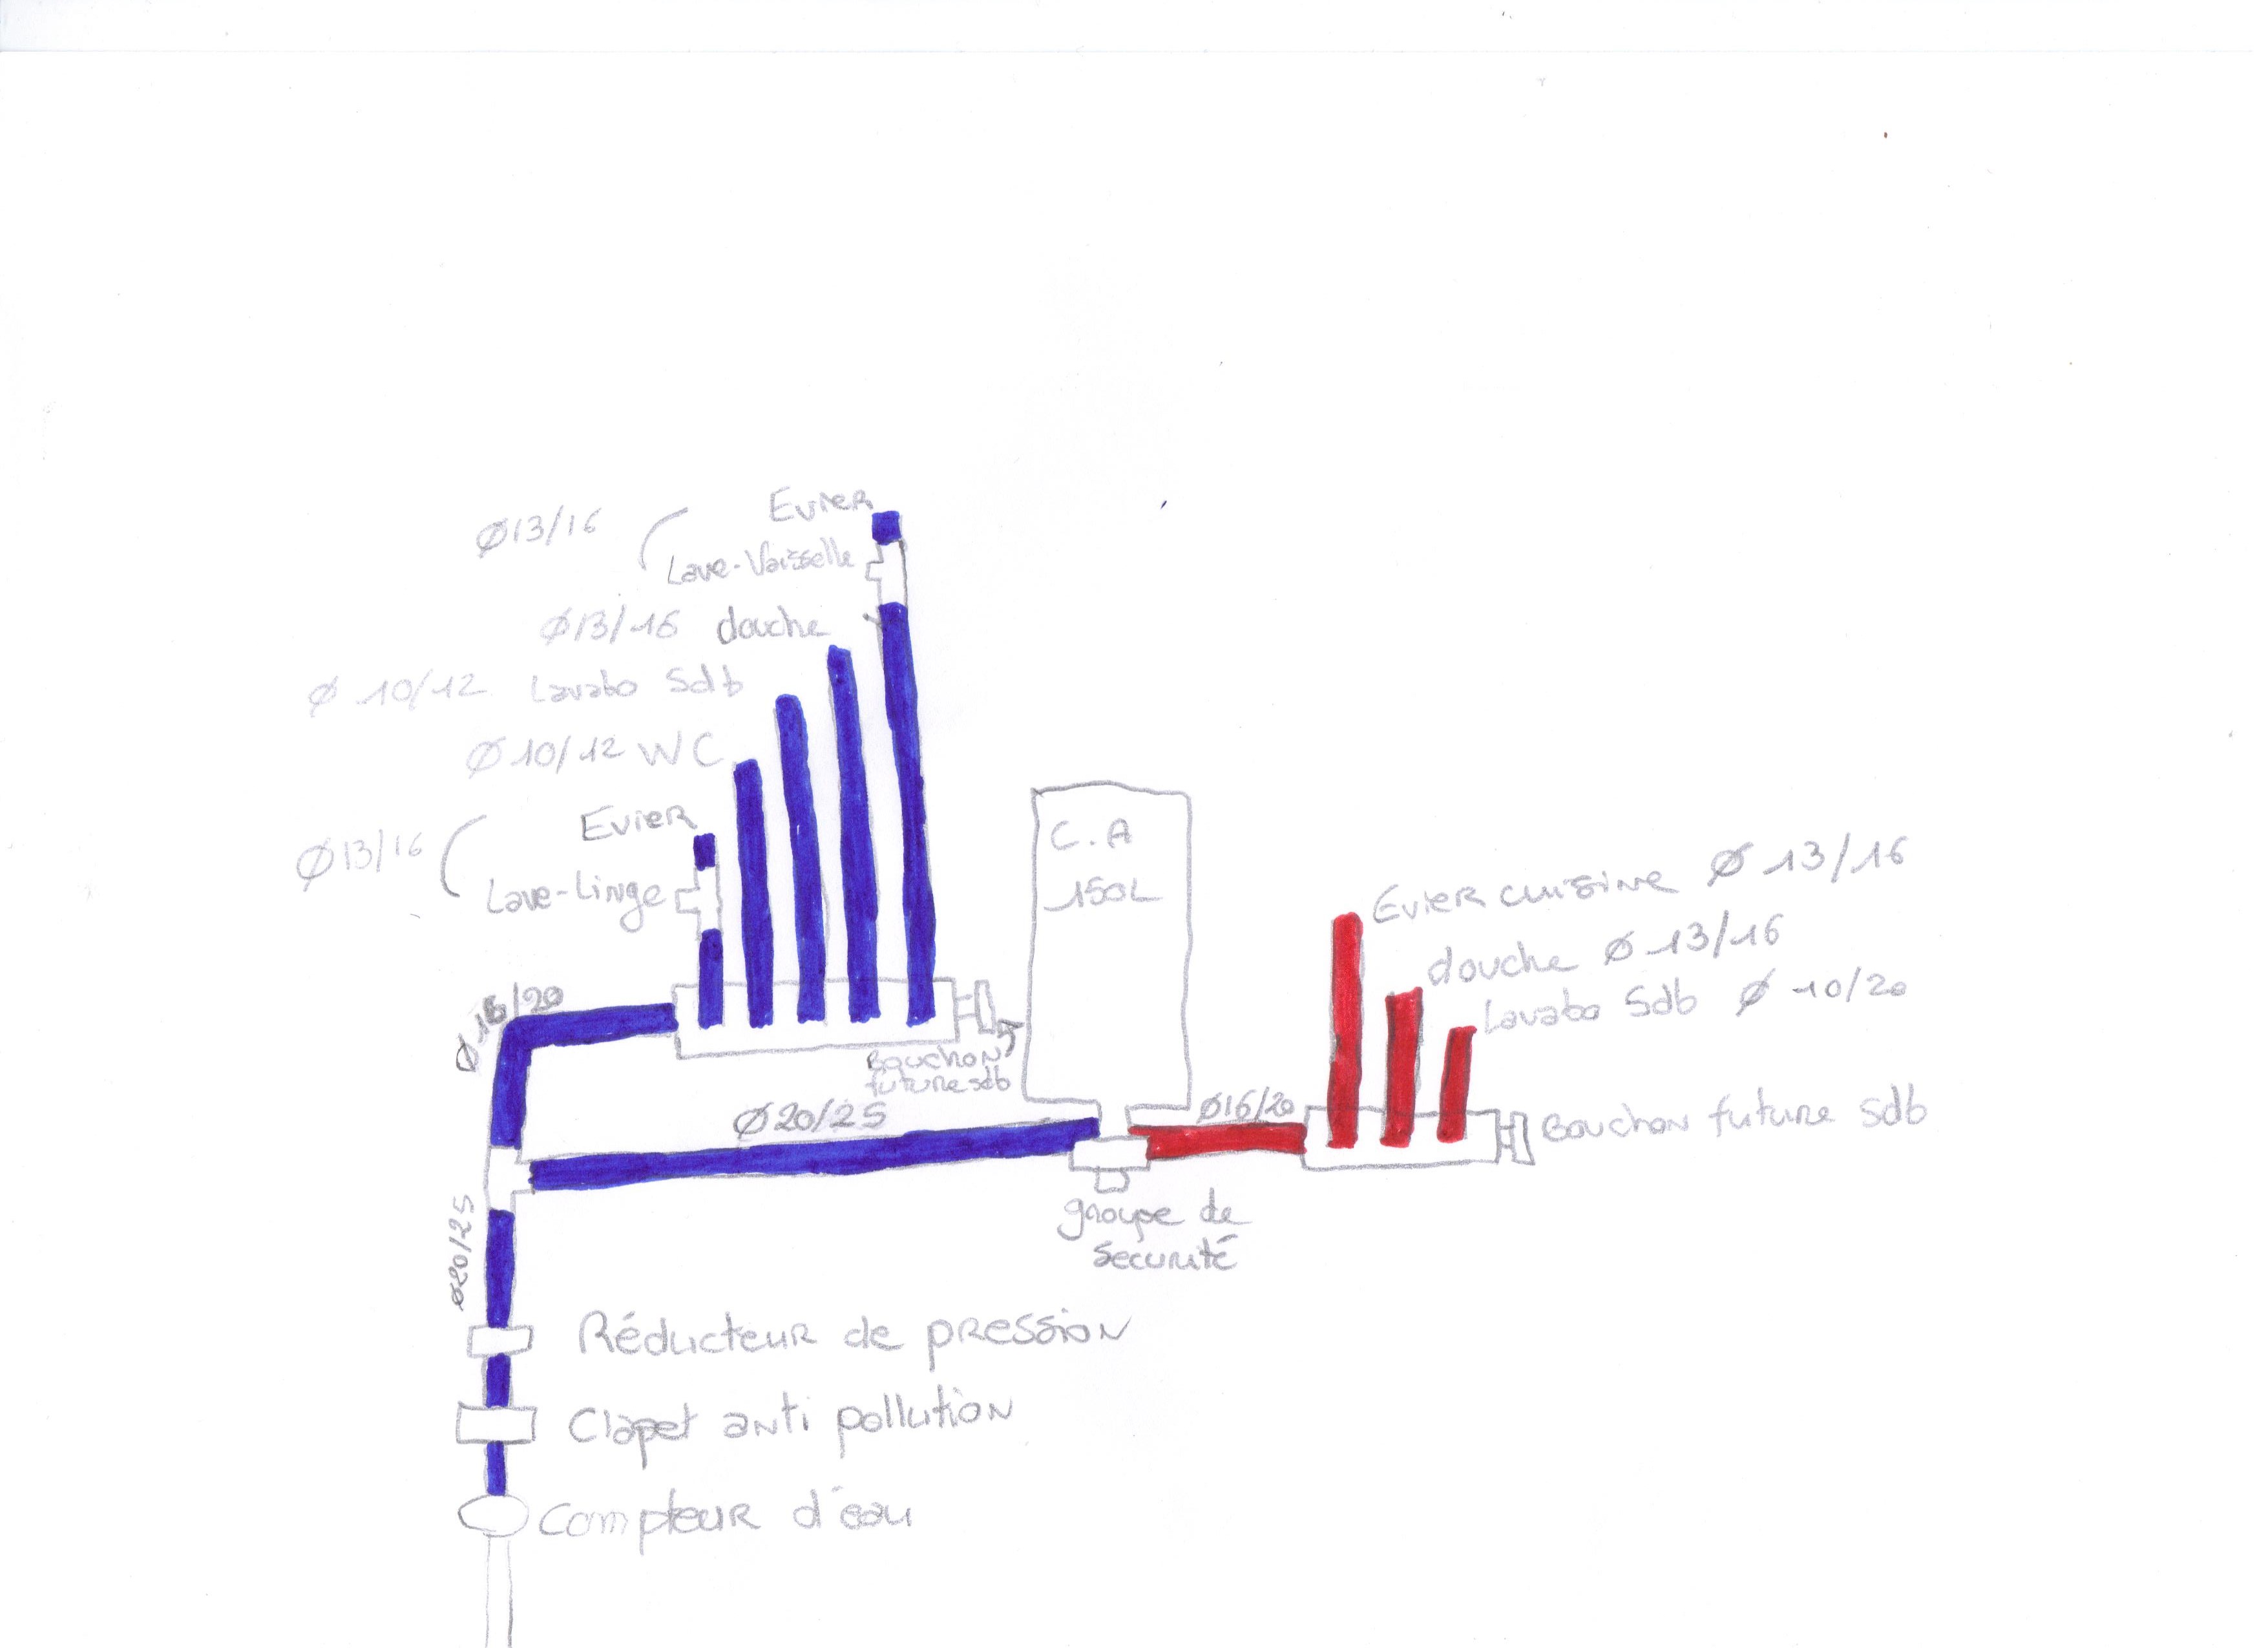 Evier
Ø13/16
Lave-Vaisselle
Ø13/16 douche
Ø 10/12 Lavabo Sdb
Ø 10/12 WC
Evier
Ø13/16
Lave-Linge
Ø 16/20
Bouchon
future sdb
C.A
150L
Ø20/25
Ø16/20
Evier cuisine Ø 13/16
douche Ø 13/16
Lavabo Sdb Ø 10/20
Bouchon future Sdb
groupe de
Securité
Ø20/25
Réducteur de pression
Clapet anti pollution
Compteur d'eau